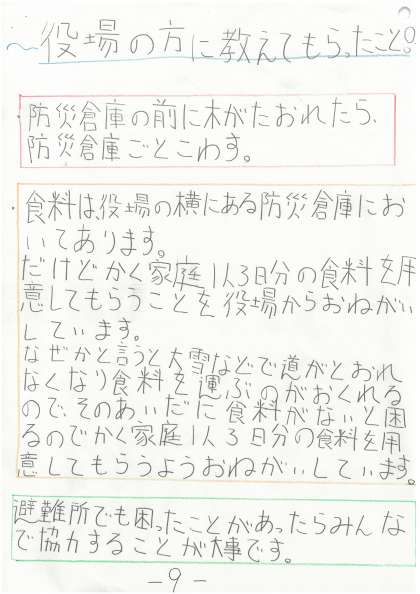 役場の方に教えてもらったこと!
防災倉庫の前に木がたおれたら、
防災倉庫ごとこわす。
食料は、役場の横にある防災倉庫にお
いてあります。
だけどかく家庭1人3日分の食料を用
意してもらうことを役場からおねがい
しています。
なぜかと言うと大雪などで道がとおれ
なくなり食料を運ぶのがおくれる
ので、そのあいだに食料がないと困
るのでかく家庭1人3日分の食料を用
意してもらうようおねがいしています。
避難所でも困ったことがあったらみんな
で協力することが大事です。
-9-